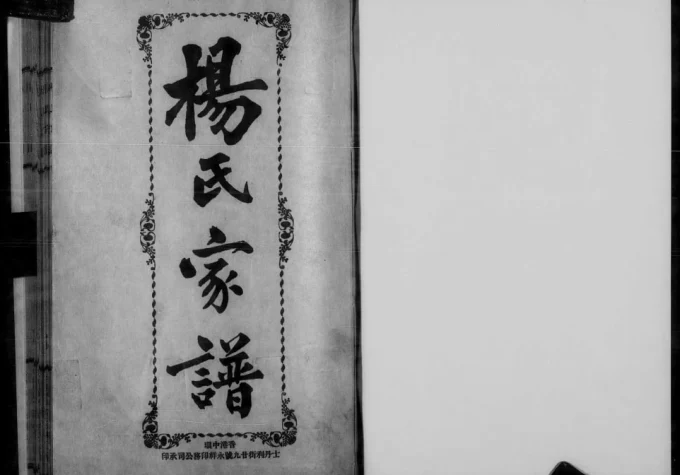 楊氏家譜
香港中環
士丹利街廿九號永軒印務公司承印